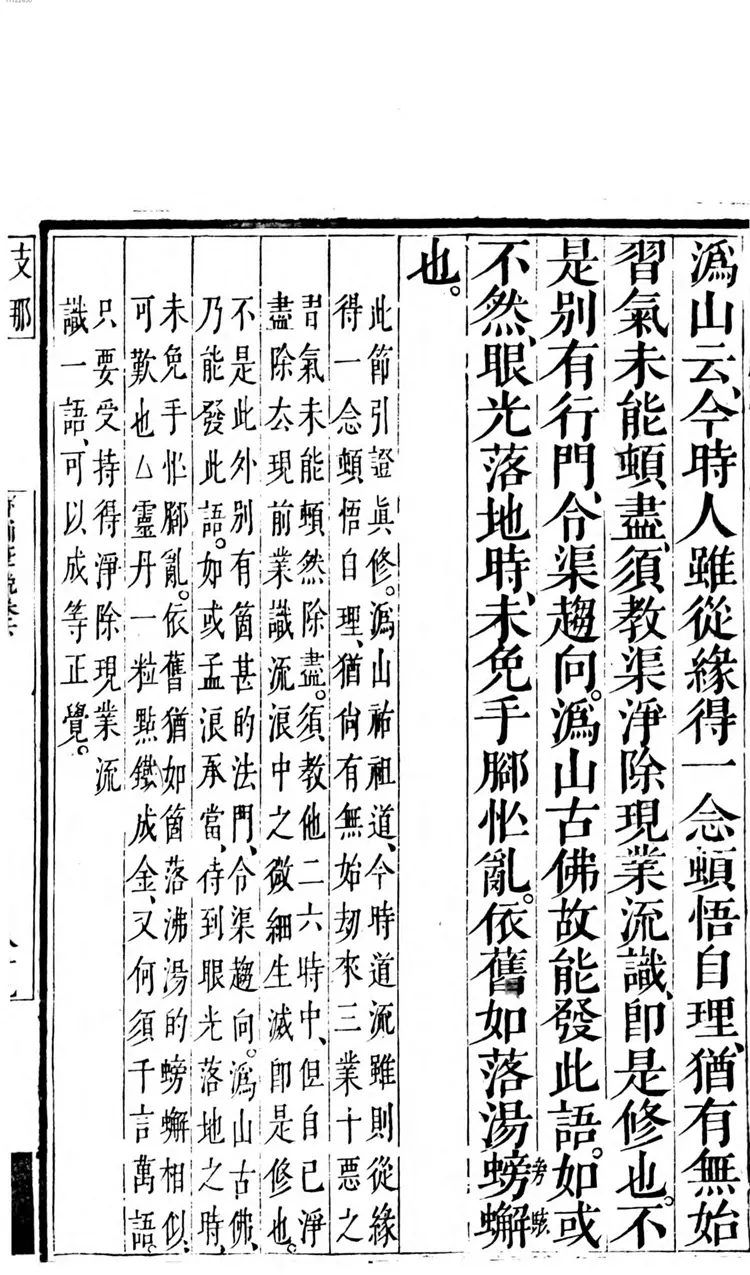 溈山云、今時人雖從緣得一念頓悟自理、猶有無始
習氣未能頓盡、須教渠淨除現業流識、卽是修也。不
是別有行門、令渠趨向。溈山古佛故能發此語。如或
不然、眼光落地時、未免手腳忙亂。依舊如落湯螃蠏
也。
此節引證眞修。溈山祐祖道、今時道流雖則從緣
得一念頓悟自理、猶尙有無始刼來三業十惡之
習氣未能頓然除盡。須教他二六時中、但自己淨
盡除去現前業識流浪中之微細生滅卽是修也。
不是此外別有箇甚的法門、令渠趨向。溈山古佛、
乃能發此語。如或孟浪承當、待到眼光落地之時、
未免手忙腳亂。依舊猶如箇落沸湯的螃蠏相似、
可歎也厶靈丹一粒點鐵成金、又何須千言萬語。
只要受持得淨除現業流
識一語、可以成等正覺。
支那